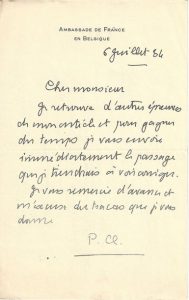 AMBASSADE DE FRANCE
EN BELGIQUE
6 juillet 34
Cher monsieur
Je retrouve d'autres épreuves
de mon article et pour gagner
du temps je vous envoie
immédiatement le passage
que je tiendrais à voir corriger.
Je vous remercie d'avance et
m'excuse du tracas que je vous
donne
P. Cl.